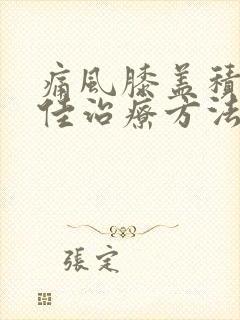 痛風膝盖積
佳治療方法
張定